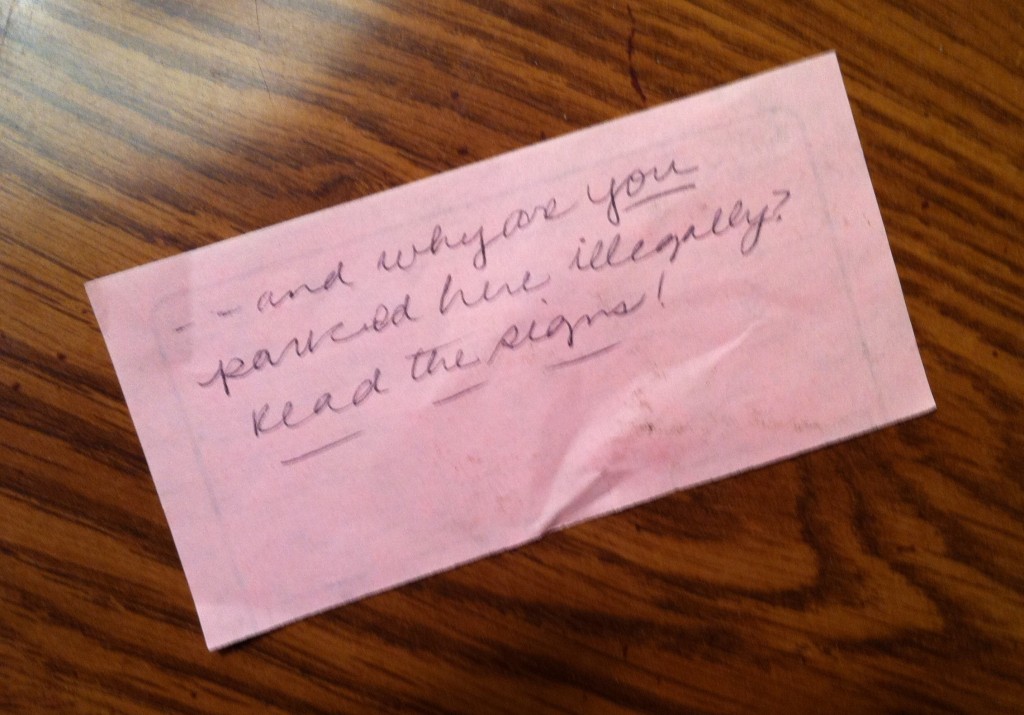 -- and why are you
parked here illegally?
Read the signs!